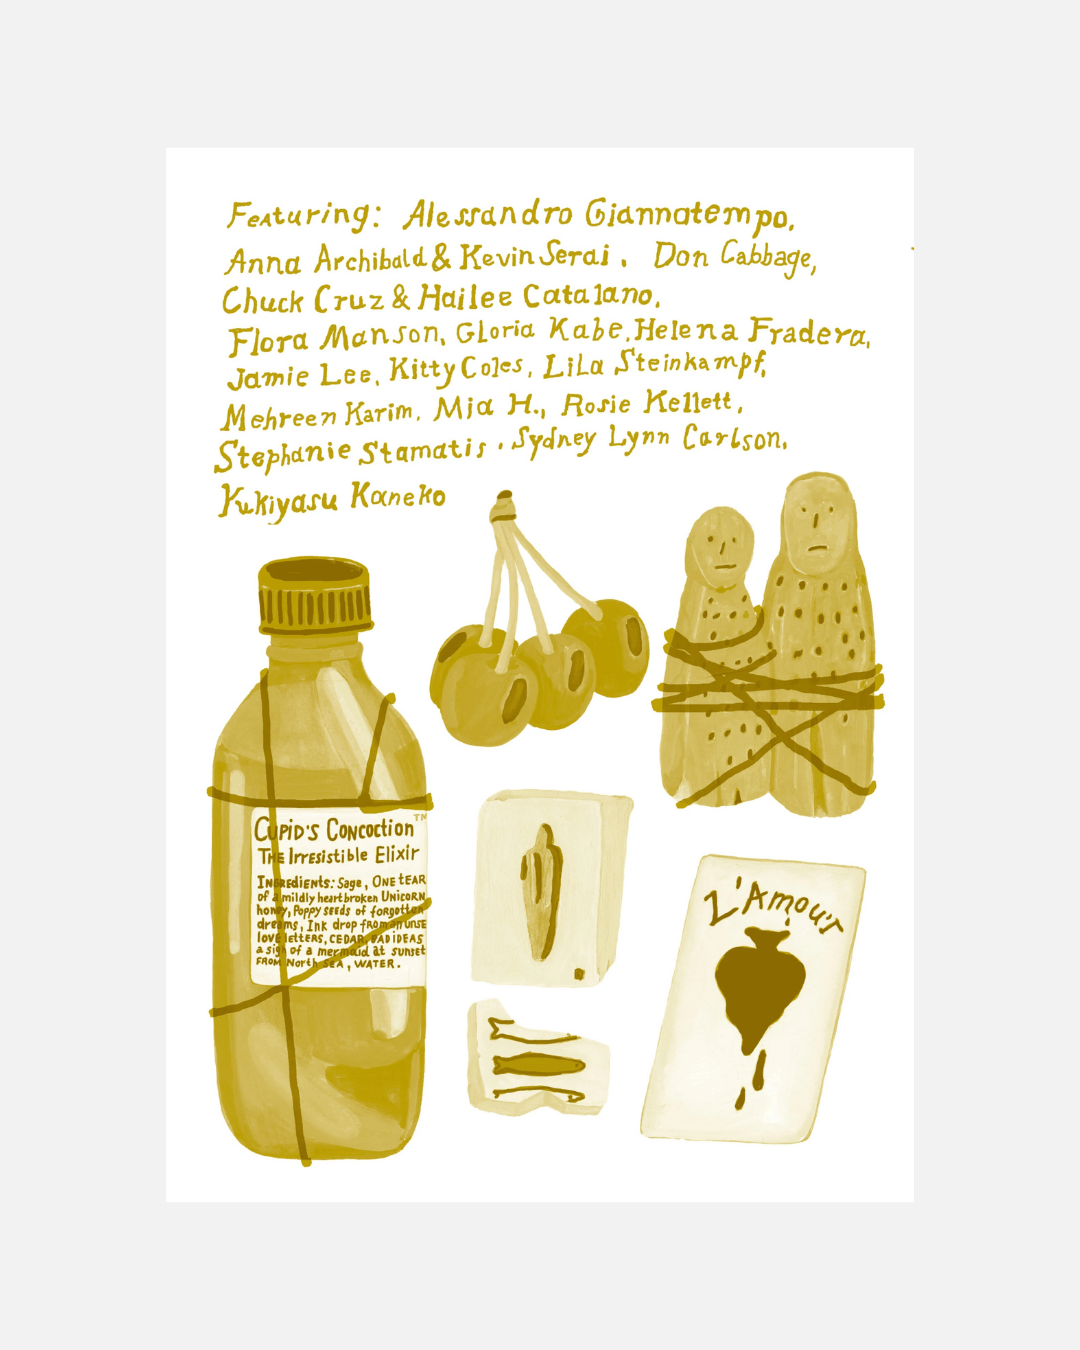 Featuring: Alessandro Giannatempo,
Anna Archibald & Kevin Serai, Don Cabbage,
Chuck Cruz & Hailee Catalano,
Flora Manson, Gloria Kabe, Helena Fradera,
Jamie Lee, Kitty Coles, Lila Steinkampf,
Mehreen Karim, Mia H., Rosie Kellett,
Stephanie Stamatis, Sydney Lynn Carlson,
Yukiyasu Kaneko
CUPID'S CONCOCTION™
THE IRRESISTIBLE ELIXIR
INGREDIENTS: Sage, ONE TEAR
of a mildly heartbroken UNICORN,
honey, Poppy seeds of forgotten
dreams, Ink drop from an unse
love letters, CEDAR, BAD IDEAS
a sigh of a mermaid at sunset
FROM North SEA, WATER.
L'Amour